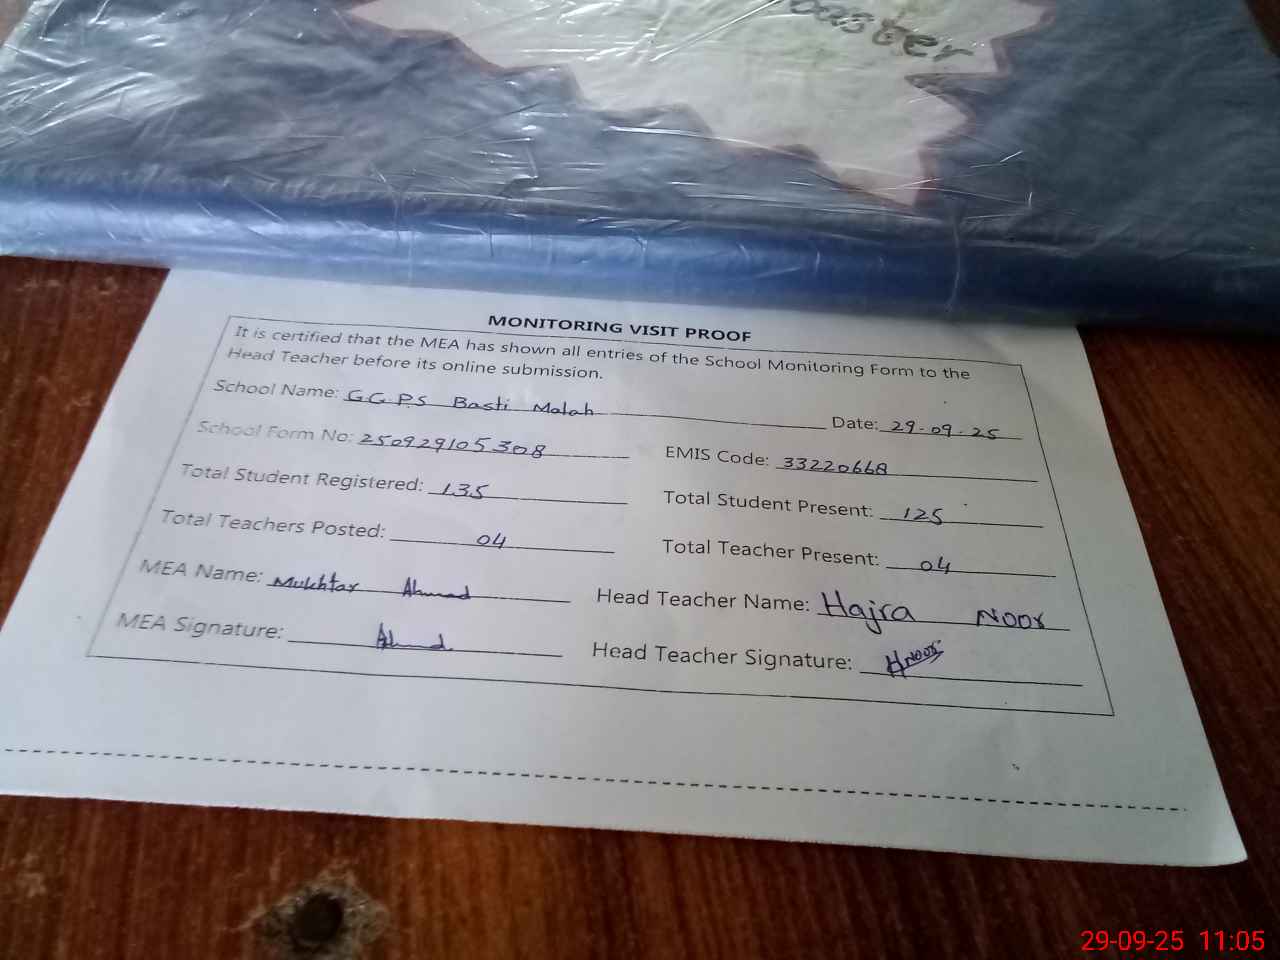 oaster
MONITORING VISIT PROOF
It is certified that the MEA has shown all entries of the School Monitoring Form to the
Head Teacher before its online submission.
School Name: GGPS Basti Malah Date: 29-09-25
School Form No: 250929105308 EMIS Code: 33220668
Total Student Registered: 135 Total Student Present: 125
Total Teachers Posted: 04 Total Teacher Present: 04
MEA Name: Mukhtar Ahmad Head Teacher Name: Hajra Noor
MEA Signature: Ahmad Head Teacher Signature: HNoor
29-09-25 11:05